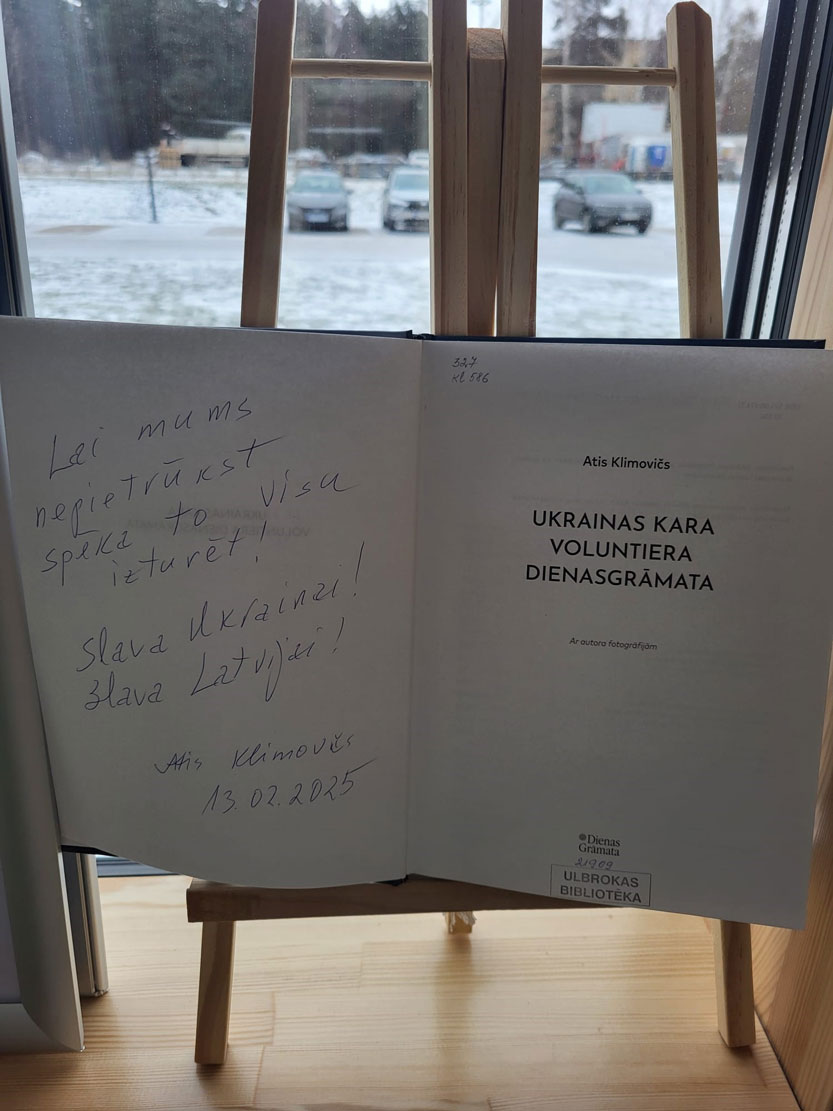 Lai mums
nepietrūkst
spēka to visu
izturēt!
Slava Ukrainai!
Slava Latvijai!
Atis Klimovičs
13.02.2025
327
Kl 586
Atis Klimovičs
UKRAINAS KARA
VOLUNTIERA
DIENASGRĀMATA
Ar autora fotogrāfijām
Dienas
Grāmata
21909
ULBROKAS
BIBLIOTĒKA